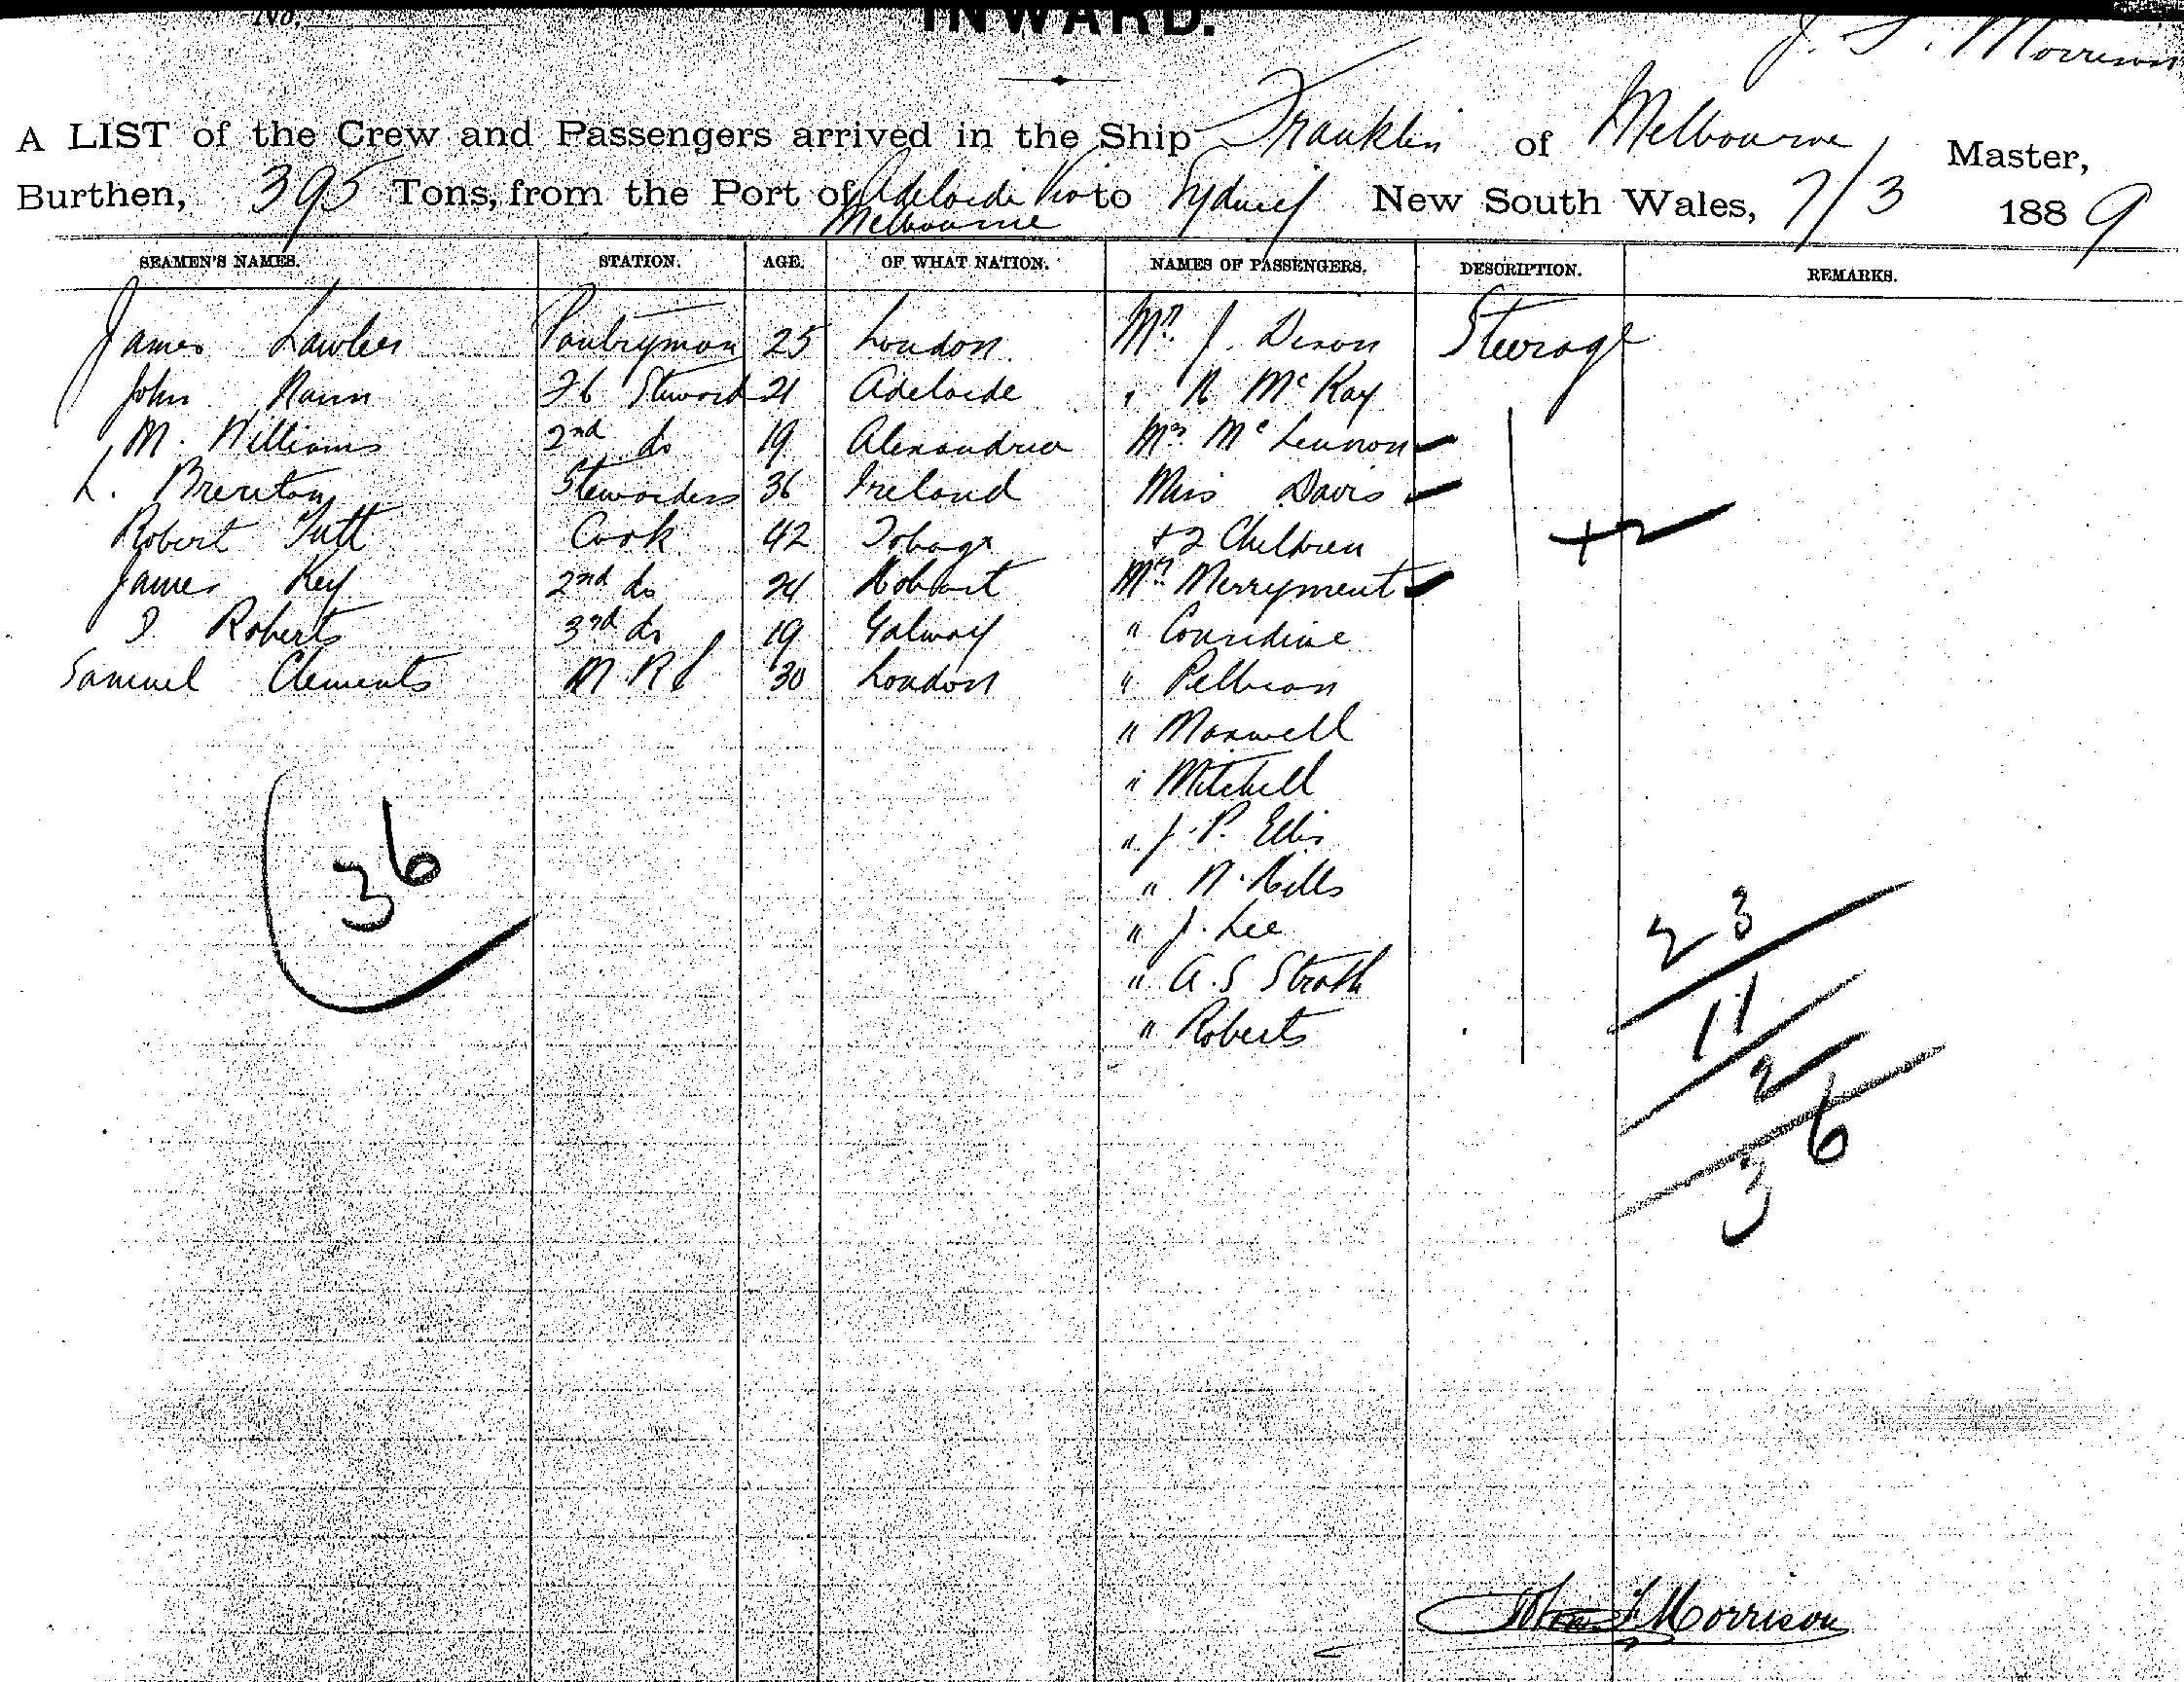 No.
INWARD.
J. S. Morrison
A LIST of the Crew and Passengers arrived in the Ship Franklin of Melbourne Master,
Burthen, 395 Tons, from the Port of Adelaide Via to Sydney New South Wales, 7/3 1889
Melbourne
SEAMEN'S NAMES. STATION. AGE. OF WHAT NATION. NAMES OF PASSENGERS. DESCRIPTION. REMARKS.
James Lawler Pantryman 25 London Mr. J. Dixon Steerage
John Steward 21 Adelaide " McKay
M. Williams 2nd do 19 Alexandria Mrs McLennon
L. Brenton Stewardess 36 Ireland Miss Davis
Robert Tutt Cook 42 Tobago + 2 Children + 2
James Key 2nd do 24 Hobart Mr. Merryment
Roberts 3rd do 19 Galway " Considine
Samuel Clements 30 London "
" Maxwell
" Mitchell
" J. P. Ellis
" Hills
" J. Lee
" A. S Stroth
" Roberts
36
23
11
2
36
John S. Morrison